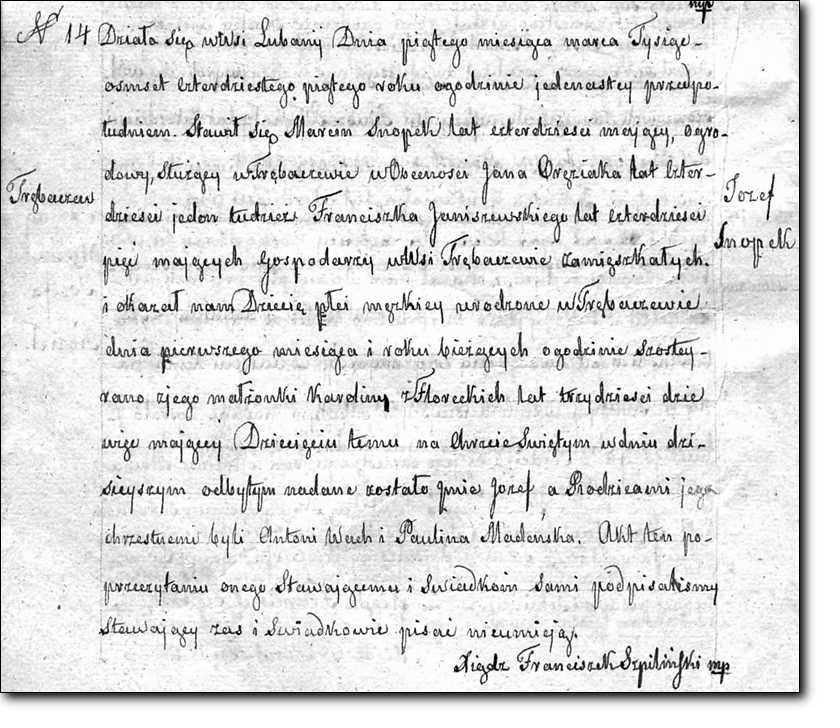 mp
No 14 Działo się wWsi Lubani Dnia piątego miesiąca marca Tysiąc-
osmset czterdziestego piątego roku ogodzinie jedenastey przedpo-
łudniem. Stawił się Marcin Snopek lat czterdzieści maiący, ogro-
dowy, Służący wTrębaczewie wObecności Jana Oręziaka lat czter-
Trębaczew
Jozef
Snopek
dzieści jeden tudzież Franciszka Janiszewskiego lat czterdzieści
pięć maiących Gospodarzy wWsi Trębaczewie zamięszkałych.
i okazał nam Dziecię płci męzkiey urodzone wTrębaczewie
dnia pierwszego miesiąca i roku bieżących ogodzinie szostey-
rano zjego małżonki Karoliny zFloreckich lat trzydzieści dzie
więć maiącey Dziecięciu temu na Chrzcie Swiętym wdniu dzi-
sieyszym odbytym nadane zostało Jmie Jozef a Rodzicami jego
chrzestnemi byli Antoni Wach i Paulina Madeńska. Akt ten po-
przeczytaniu onego Stawaiącemu i Swiadkom Sami podpisalismy
Stawaiący zas i Swiadkowie pisać nieumieją.
Xiądz Franciszek Szpiliński mp